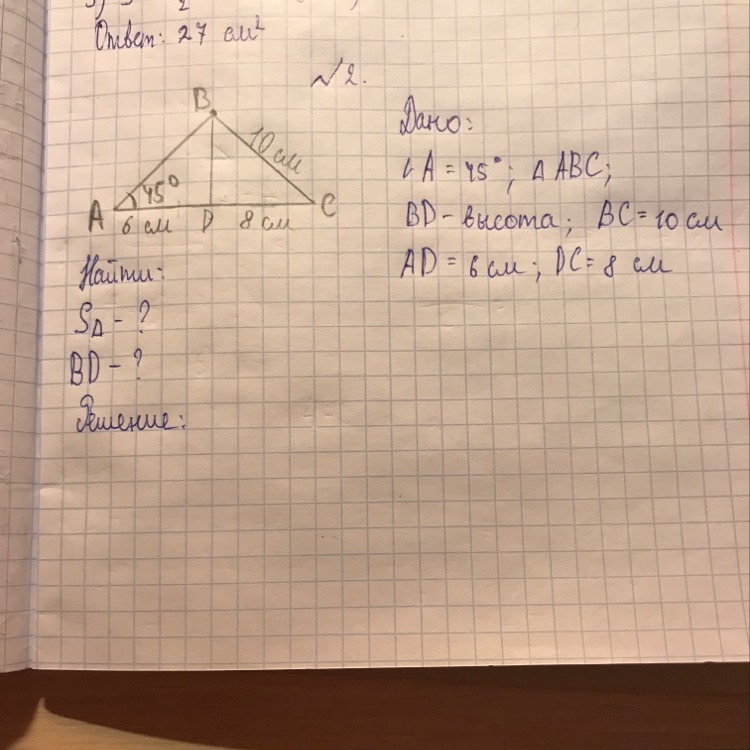 2
Ответ: 27 см²
№2.
B
10 см
45°
A
6 см D 8 см C
Дано:
∠A = 45°; △ABC;
BD - высота; BC = 10 см
AD = 6 см; DC = 8 см
Найти:
S△ - ?
BD - ?
Решение: